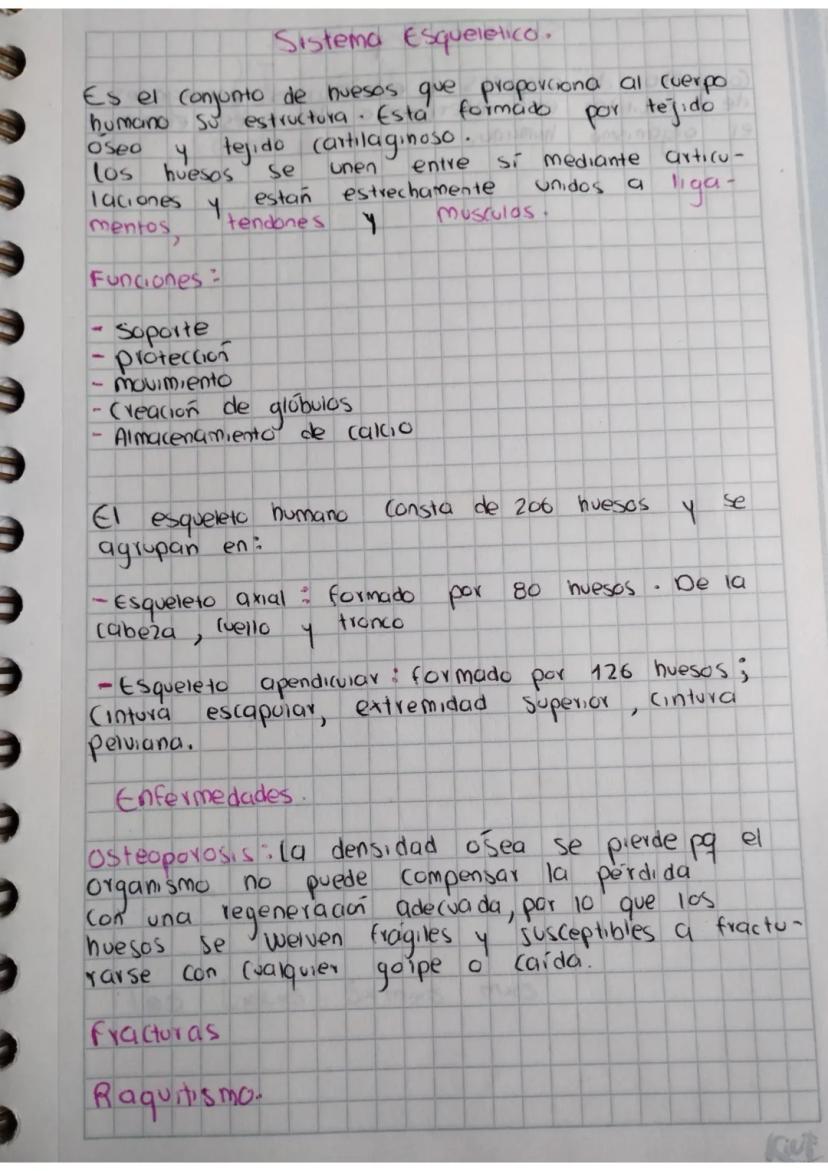 Sistema Esqueletico.
Es el conjunto de huesos que proporciona al cuerpo
humano su estructura. Está formado por tejido
óseo y tejido cartilaginoso.
Los huesos se unen entre sí mediante articu-
laciones y están estrechamente unidos a liga-
mentos, tendones y musculos.
Funciones:
- Soporte
- protección
- movimiento
- Creación de glóbulos
- Almacenamiento de calcio
El esqueleto humano consta de 206 huesos y se
agrupan en:
- Esqueleto axial: formado por 80 huesos. De la
cabeza, cuello y tronco
- Esqueleto apendicular: formado por 126 huesos;
Cintura escapular, extremidad superior, cintura
pelviana.
Enfermedades.
Osteoporosis: La densidad ósea se pierde pq el
organismo no puede compensar la pérdida
con una regeneración adecuada, por lo que los
huesos se vuelven frágiles y susceptibles a fractu-
rarse con cualquier golpe o caída.
Fracturas
Raquitismo.